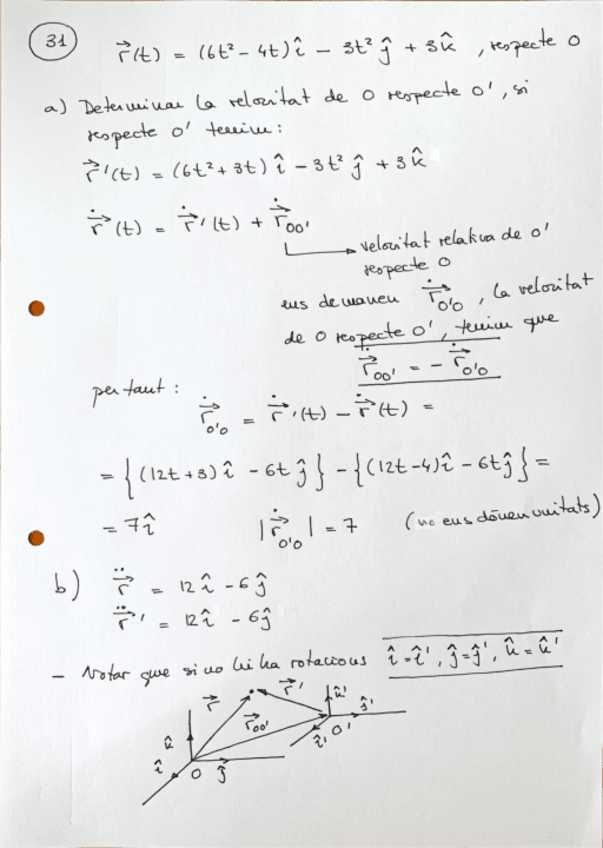 31
r⃗(t) = (6t² - 4t) î - 3t² ĵ + 3 k̂ , respecte O
a) Determinar la velocitat de O respecte O', si
respecte O' tenim:
r⃗'(t) = (6t² + 3t) î - 3t² ĵ + 3 k̂
ṙ⃗(t) = ṙ⃗'(t) + ṙ⃗OO'
velocitat relativa de O'
respecte O
ens demanen ṙ⃗O'O , la velocitat
de O respecte O', tenim que
ṙ⃗OO' = - ṙ⃗O'O
per tant :
ṙ⃗O'O = ṙ⃗'(t) - ṙ⃗(t) =
= {(12t + 3) î - 6t ĵ} - {(12t - 4) î - 6t ĵ} =
= 7 î |ṙ⃗O'O| = 7 (no ens dónen unitats)
b) r̈⃗ = 12 î - 6 ĵ
r̈⃗' = 12 î - 6 ĵ
- Notar que si no hi ha rotacions î = î', ĵ = ĵ', k̂ = k̂'
r⃗ r⃗' k̂' ĵ'
k̂ r⃗OO' î' O'
î O ĵ